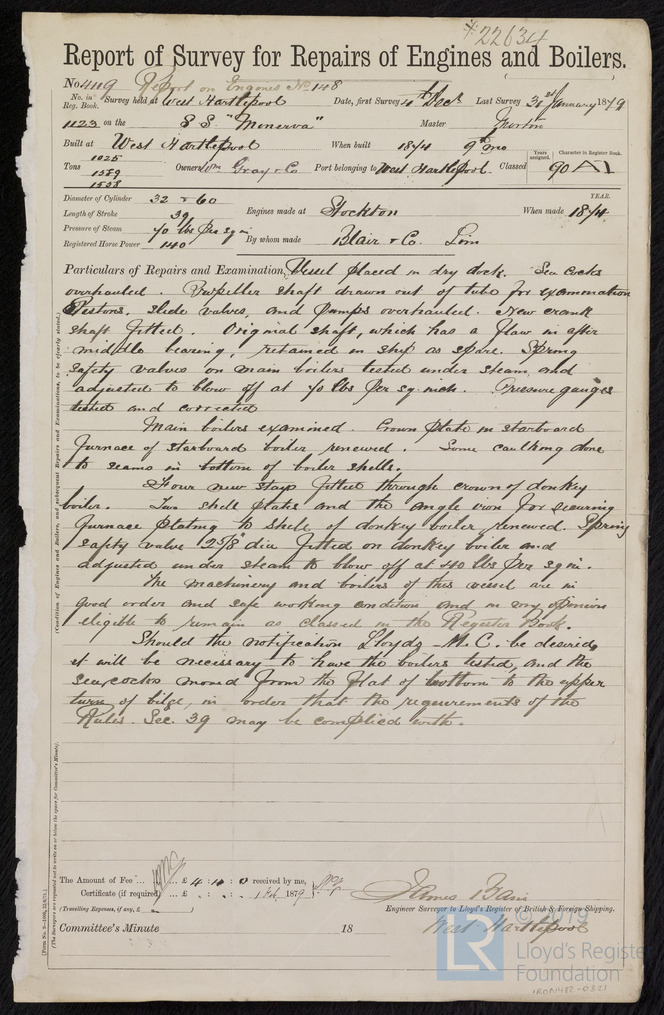 22634
Report of Survey for Repairs of Engines and Boilers.
No 4119 Report on Engines No 148
No. in Reg. Book. Survey held at West Hartlepool Date, first Survey 4th Dec Last Survey 31st January 1879
1123 on the S.S. "Minerva" Master
Built at West Hartlepool When built 1874 9th mo YEARS ASSIGNED. Character in Register Book.
Tons 1025 1589 1538 Owners Wm Gray & Co Port belonging to West Hartlepool Classed 90 A1
Diameter of Cylinder 32 & 60 YEAR.
Length of Stroke 39 Engines made at Stockton When made 1874
Pressure of Steam 70 lbs per sq in
Registered Horse Power 140 By whom made Blair & Co. Lim
Particulars of Repairs and Examination, Vessel placed in dry dock. Sea cocks
overhauled. Propeller shaft drawn out of tube for examination
Pistons, slide valves, and pumps overhauled. New crank
shaft fitted. Original shaft, which has a flaw in after
middle bearing, retained in ship as spare. Spring
safety valves on main boilers tested under steam and
adjusted to blow off at 70 lbs per sq inch. Pressure gauges
tested and corrected
Main boilers examined. Crown plate in starboard
furnace of starboard boiler renewed. Some caulking done
to seams in bottom of boiler shells.
Four new stays fitted through crown of donkey
boiler. Two shell plates and the angle iron for securing
furnace plating to shell of donkey boiler renewed. Spring
safety valve 2 5/8" dia fitted on donkey boiler and
adjusted under steam to blow off at 40 lbs per sq in.
The machinery and boilers of this vessel are in
good order and safe working condition and in my opinion
eligible to remain as classed in the Register Book.
Should the notification Lloyds M.C. be desired,
it will be necessary to have the boilers tested, and the
sea cocks moved from the flat of bottom to the upper
turn of bilge, in order that the requirements of the
Rules Sec. 39 may be complied with.
(Condition of Engines and Boilers, and subsequent Repairs and Examinations, to be clearly stated.)
The Amount of Fee ... £ 4 : 4 : 0 received by me,
Certificate (if required) ... £ 1 Feb. 1879
(Travelling Expenses, if any, £ )
James Bain
Engineer Surveyor to Lloyd's Register of British & Foreign Shipping.
West Hartlepool
Committee's Minute 18
© 2019
LR
Lloyd's Register
Foundation